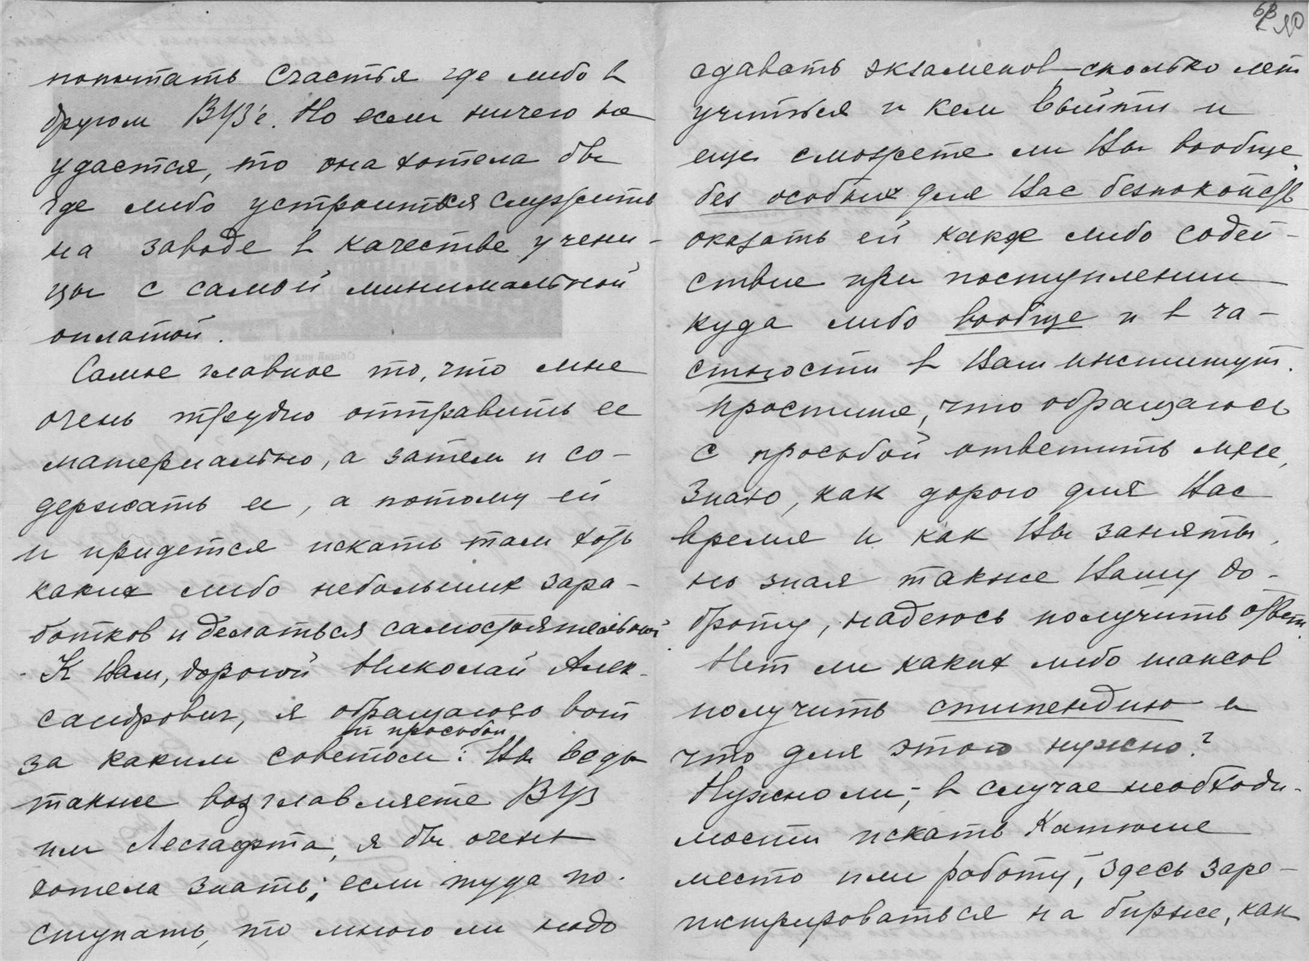 попытать счастья где либо в
другом ВУЗ'е. Но если ничего не
удастся, то она хотела бы
где либо устроиться служить
на заводе в качестве учени-
цы с самой минимальной
оплатой.
Самое главное то, что мне
очень трудно отправить ее
материально, а затем и со-
держать ее, а потому ей
и придется искать там хоть
каких либо небольших зара-
ботков и делаться самостоятельной.
К Вам, дорогой Николай Алек-
сандрович, я обращаюсь вот
и просьбой
за каким советом: Вы ведь
также возглавляете ВУЗ
им Лесгафта, я бы очень
хотела знать; если туда по-
ступать, то много ли надо
63
сдавать экзаменов, сколько лет
учиться и кем выйти и
еще сможете ли Вы вообще
без особых для Вас безпокойств
оказать ей какое либо содей-
ствие при поступлении
куда либо вообще и в ча-
стности в Ваш институт.
Простите, что обращаюсь
с просьбой ответить мне,
знаю, как дорого для Вас
время и как Вы заняты,
но зная также Вашу до-
броту, надеюсь получить ответ.
Нет ли каких либо шансов
получить стипендию и
что для этого нужно?
Нужно ли, в случае необходи-
мости искать Катюше
место или работу, здесь заре-
гистрироваться на бирже, как